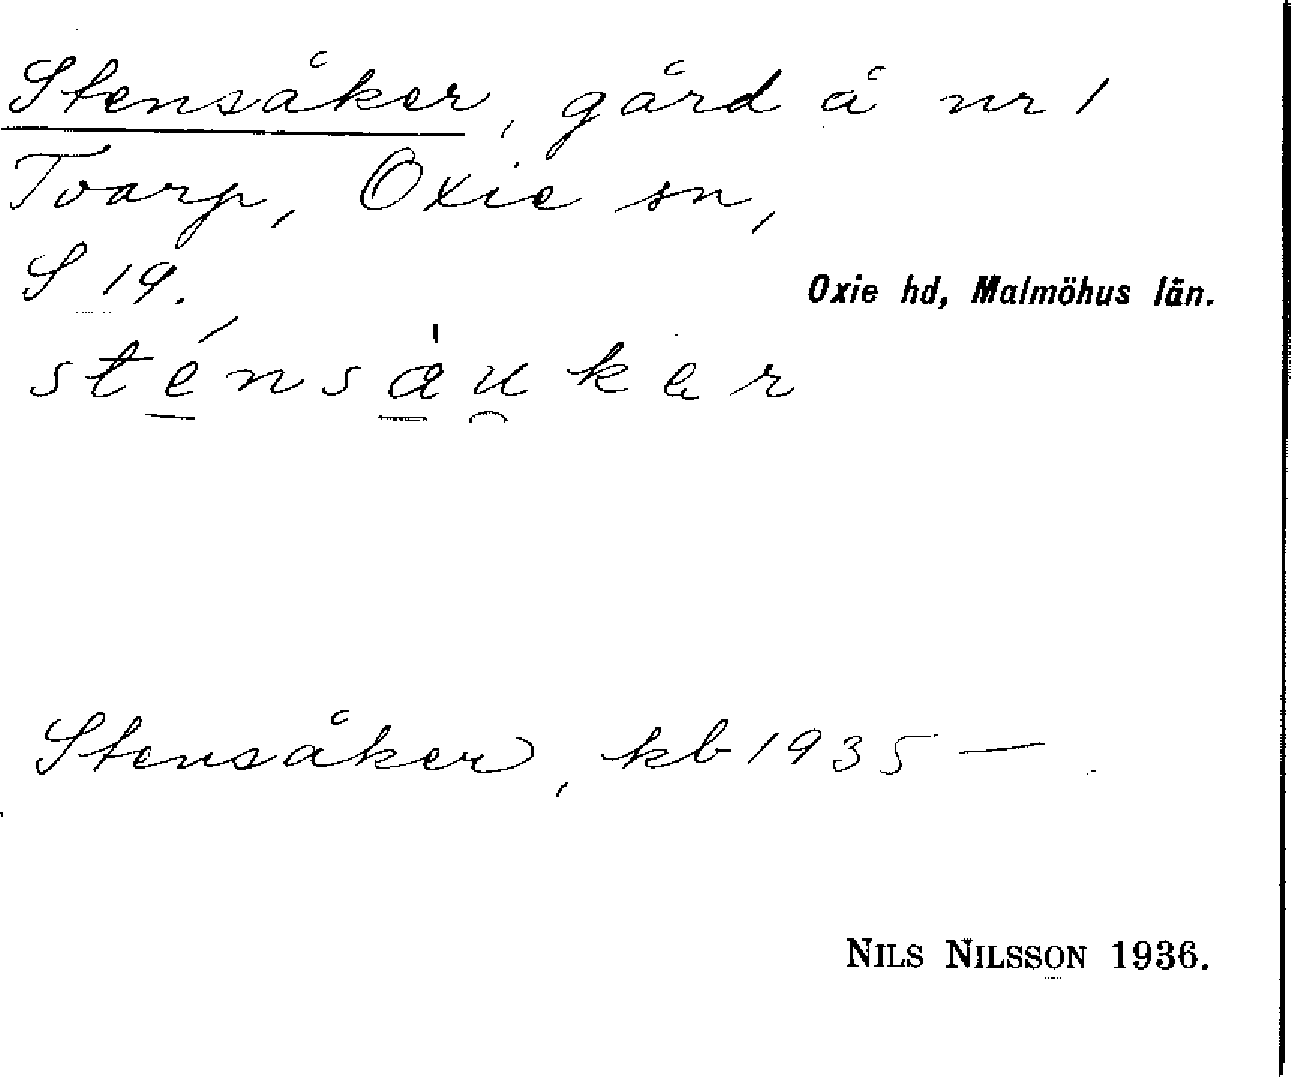 Stensåker, gård å nr 1
Tvarp, Oxie sn,
S 19.
Oxie hd, Malmöhus län.
sténsàu̯kər
Stensåker, kb 1935 —.
NILS NILSSON 1936.